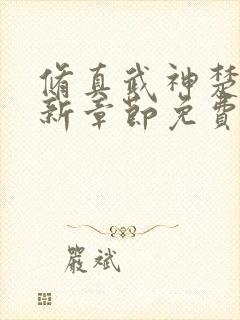 脩真武神楚
新章節免費
嚴斌